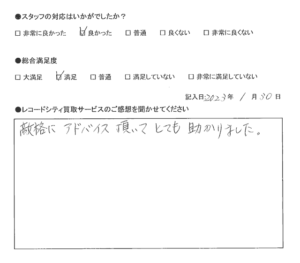 ●スタッフの対応はいかがでしたか？
□ 非常に良かった ☑ 良かった □ 普通 □ 良くない □ 非常に良くない
●総合満足度
□ 大満足 ☑ 満足 □ 普通 □ 満足していない □ 非常に満足していない
記入日 2023年 1月 30日
●レコードシティ買取サービスのご感想を聞かせてください
敵格に アドバイス 頂いて とても 助かりました。